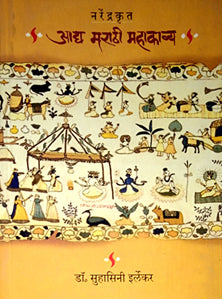 नरेंद्रकृत
आद्य मराठी महाकाव्य
डॉ. सुहासिनी इर्लेकर